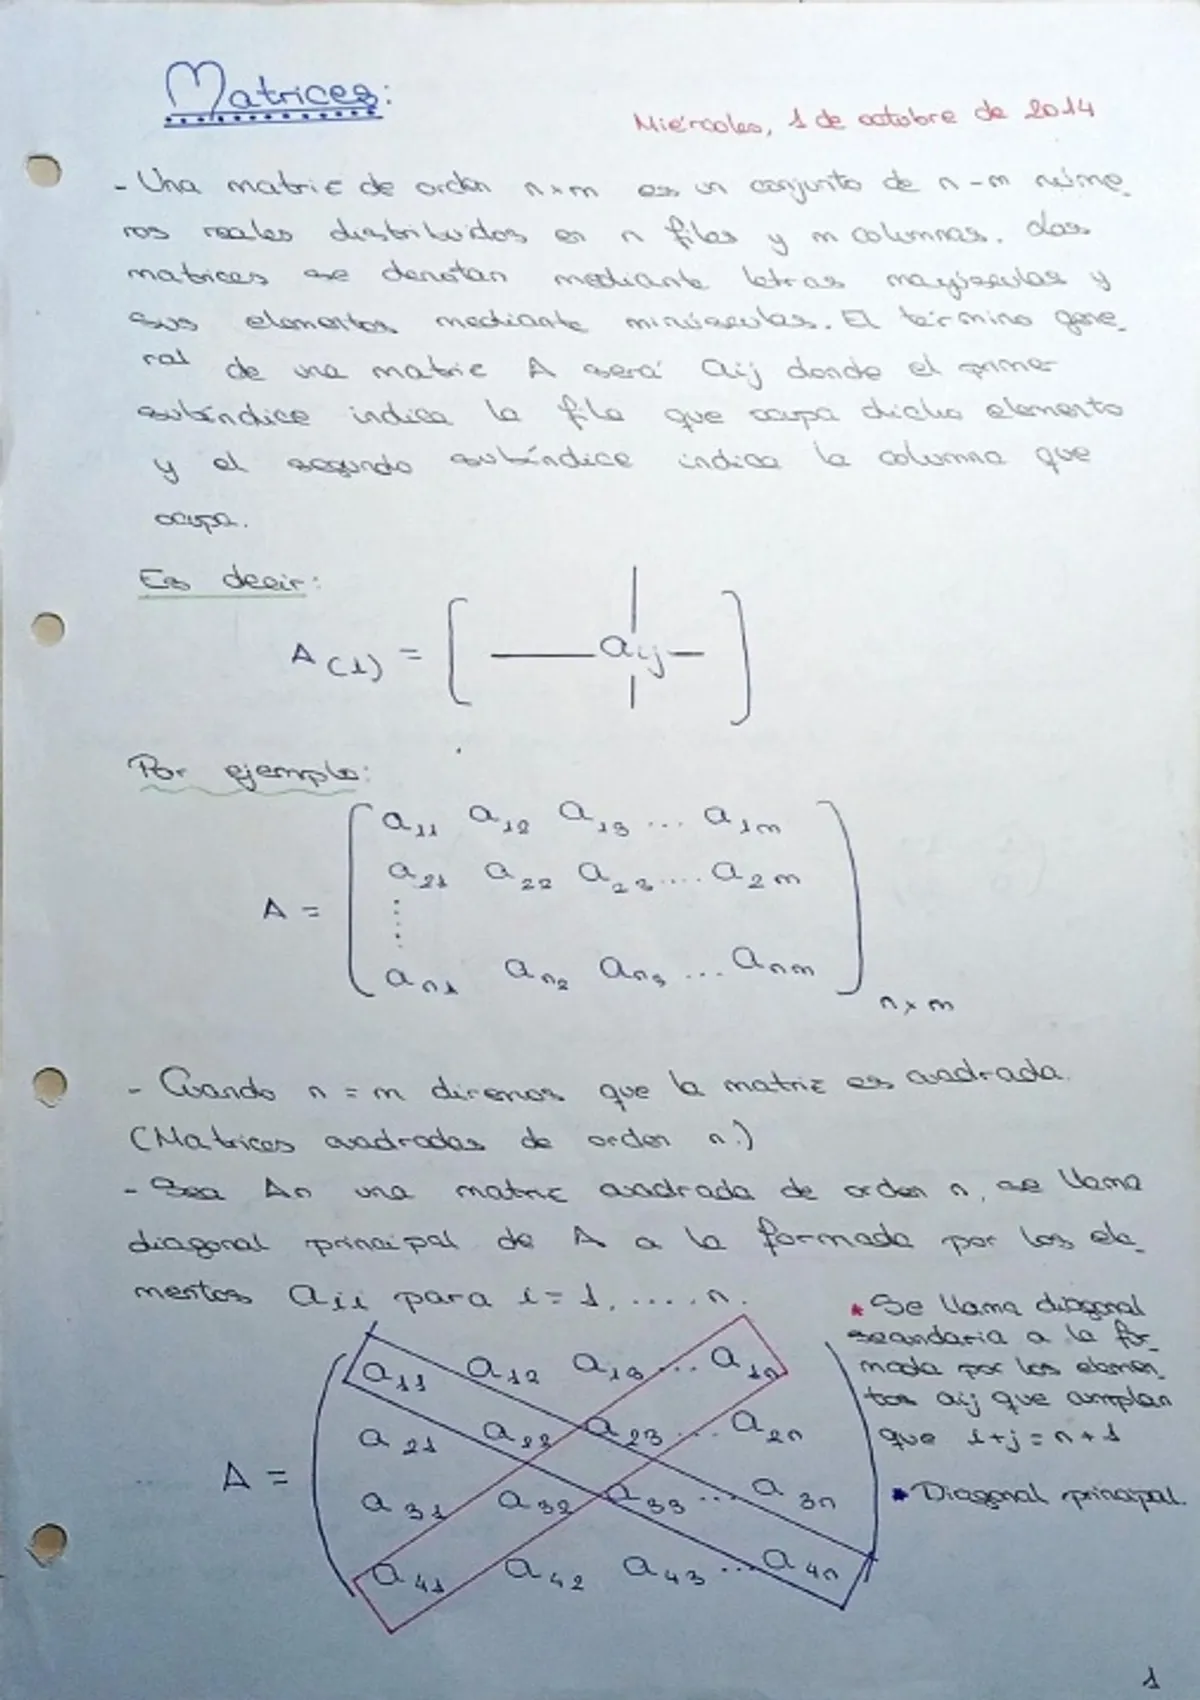 Matrices:
Miércoles, 1 de octubre de 2014
- Una matriz de orden n×m es un conjunto de n-m núme
ros reales distribuidos en n filas y m columnas. Las
matrices se denotan mediante letras mayúsculas y
sus elementos mediante minúsculas. El término gene
ral de una matriz A será aij donde el primer
subíndice indica la fila que ocupa dicho elemento
y el segundo subíndice indica la columna que
ocupa.
Es decir:
A(1) = [ aij ]
Por ejemplo:
a11 a12 a13 ... a1m
a21 a22 a23 .... a2m
A =
an1 an2 an3 ... anm
n×m
- Cuando n = m diremos que la matriz es cuadrada.
(Matrices cuadradas de orden n.)
- Sea An una matriz cuadrada de orden n, se llama
diagonal principal de A a la formada por los ele
mentos aii para i = 1, .... n.
* Se llama diagonal
secundaria a la for
mada por los elemen
tos aij que cumplan
que i+j = n+1
* Diagonal principal.
a11 a12 a13 ... a1n
a21 a22 a23 ... a2n
A =
a31 a32 a33 ... a3n
a41 a42 a43 ... a4n
1